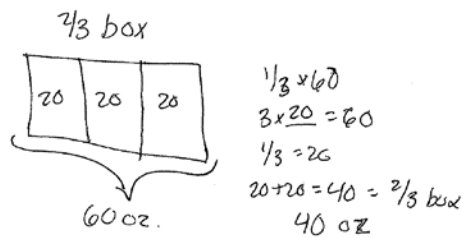 2/3 box
20 20 20
60 oz.
1/3 × 60
3 × 20 = 60
1/3 = 20
20 + 20 = 40 = 2/3 box
40 oz